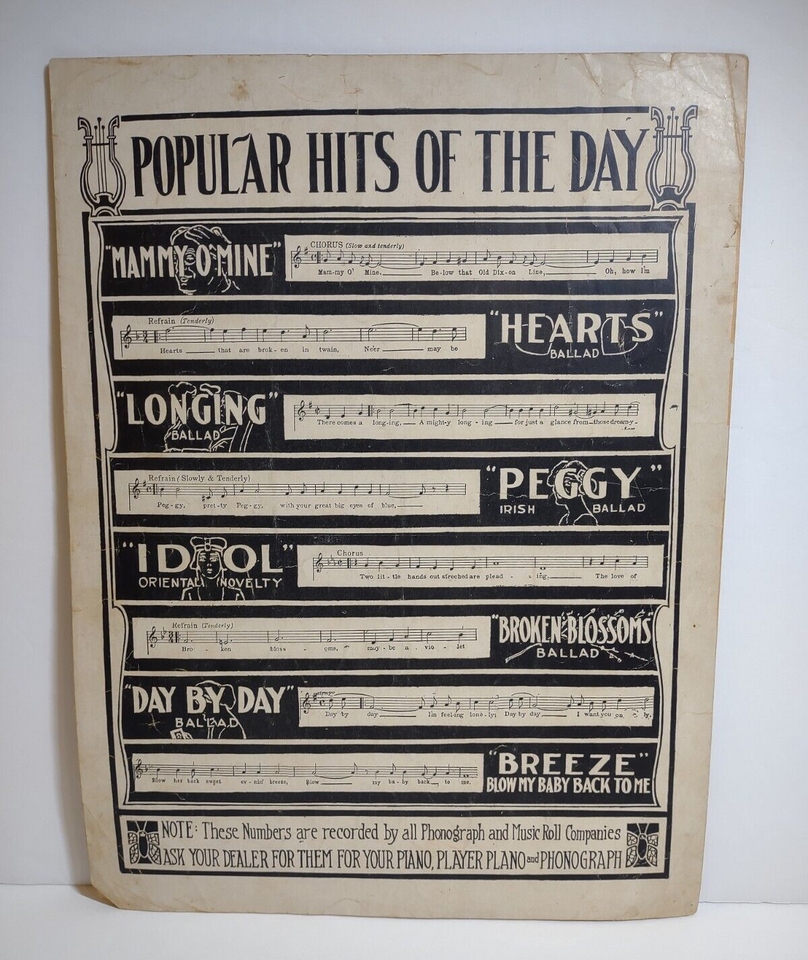 POPULAR HITS OF THE DAY
"MAMMY O' MINE"
CHORUS (Slow and tenderly)
Mam-my O' Mine, Be-low that Old Dix-en Line, Oh, how I'm
Refrain (Tenderly)
Hearts that are brok-en in twain, Ne'er may be
"HEARTS"
BALLAD
"LONGING"
BALLAD
There comes a long-ing, A might-y long-ing for just a glance from those dream-y
"PEGGY"
IRISH BALLAD
Refrain (Slowly & Tenderly)
Peg-gy, pret-ty Peg-gy, with your great big eyes of blue,
"IDOL"
ORIENTAL NOVELTY
Chorus
Two lit-tle hands out streched are plead-ing, The love of
Refrain (Tenderly)
Bro-ken bloss-oms, may-be a vio-let
"BROKEN BLOSSOMS"
BALLAD
"DAY BY DAY"
BALLAD
Day by day I'm feel-ing lone-ly; Day by day I want you on-ly,
Blow her back sweet ev-nin' breeze, Blow my ba-by back to me.
"BREEZE"
BLOW MY BABY BACK TO ME
NOTE: These Numbers are recorded by all Phonograph and Music Roll Companies
ASK YOUR DEALER FOR THEM FOR YOUR PIANO, PLAYER PLANO and PHONOGRAPH